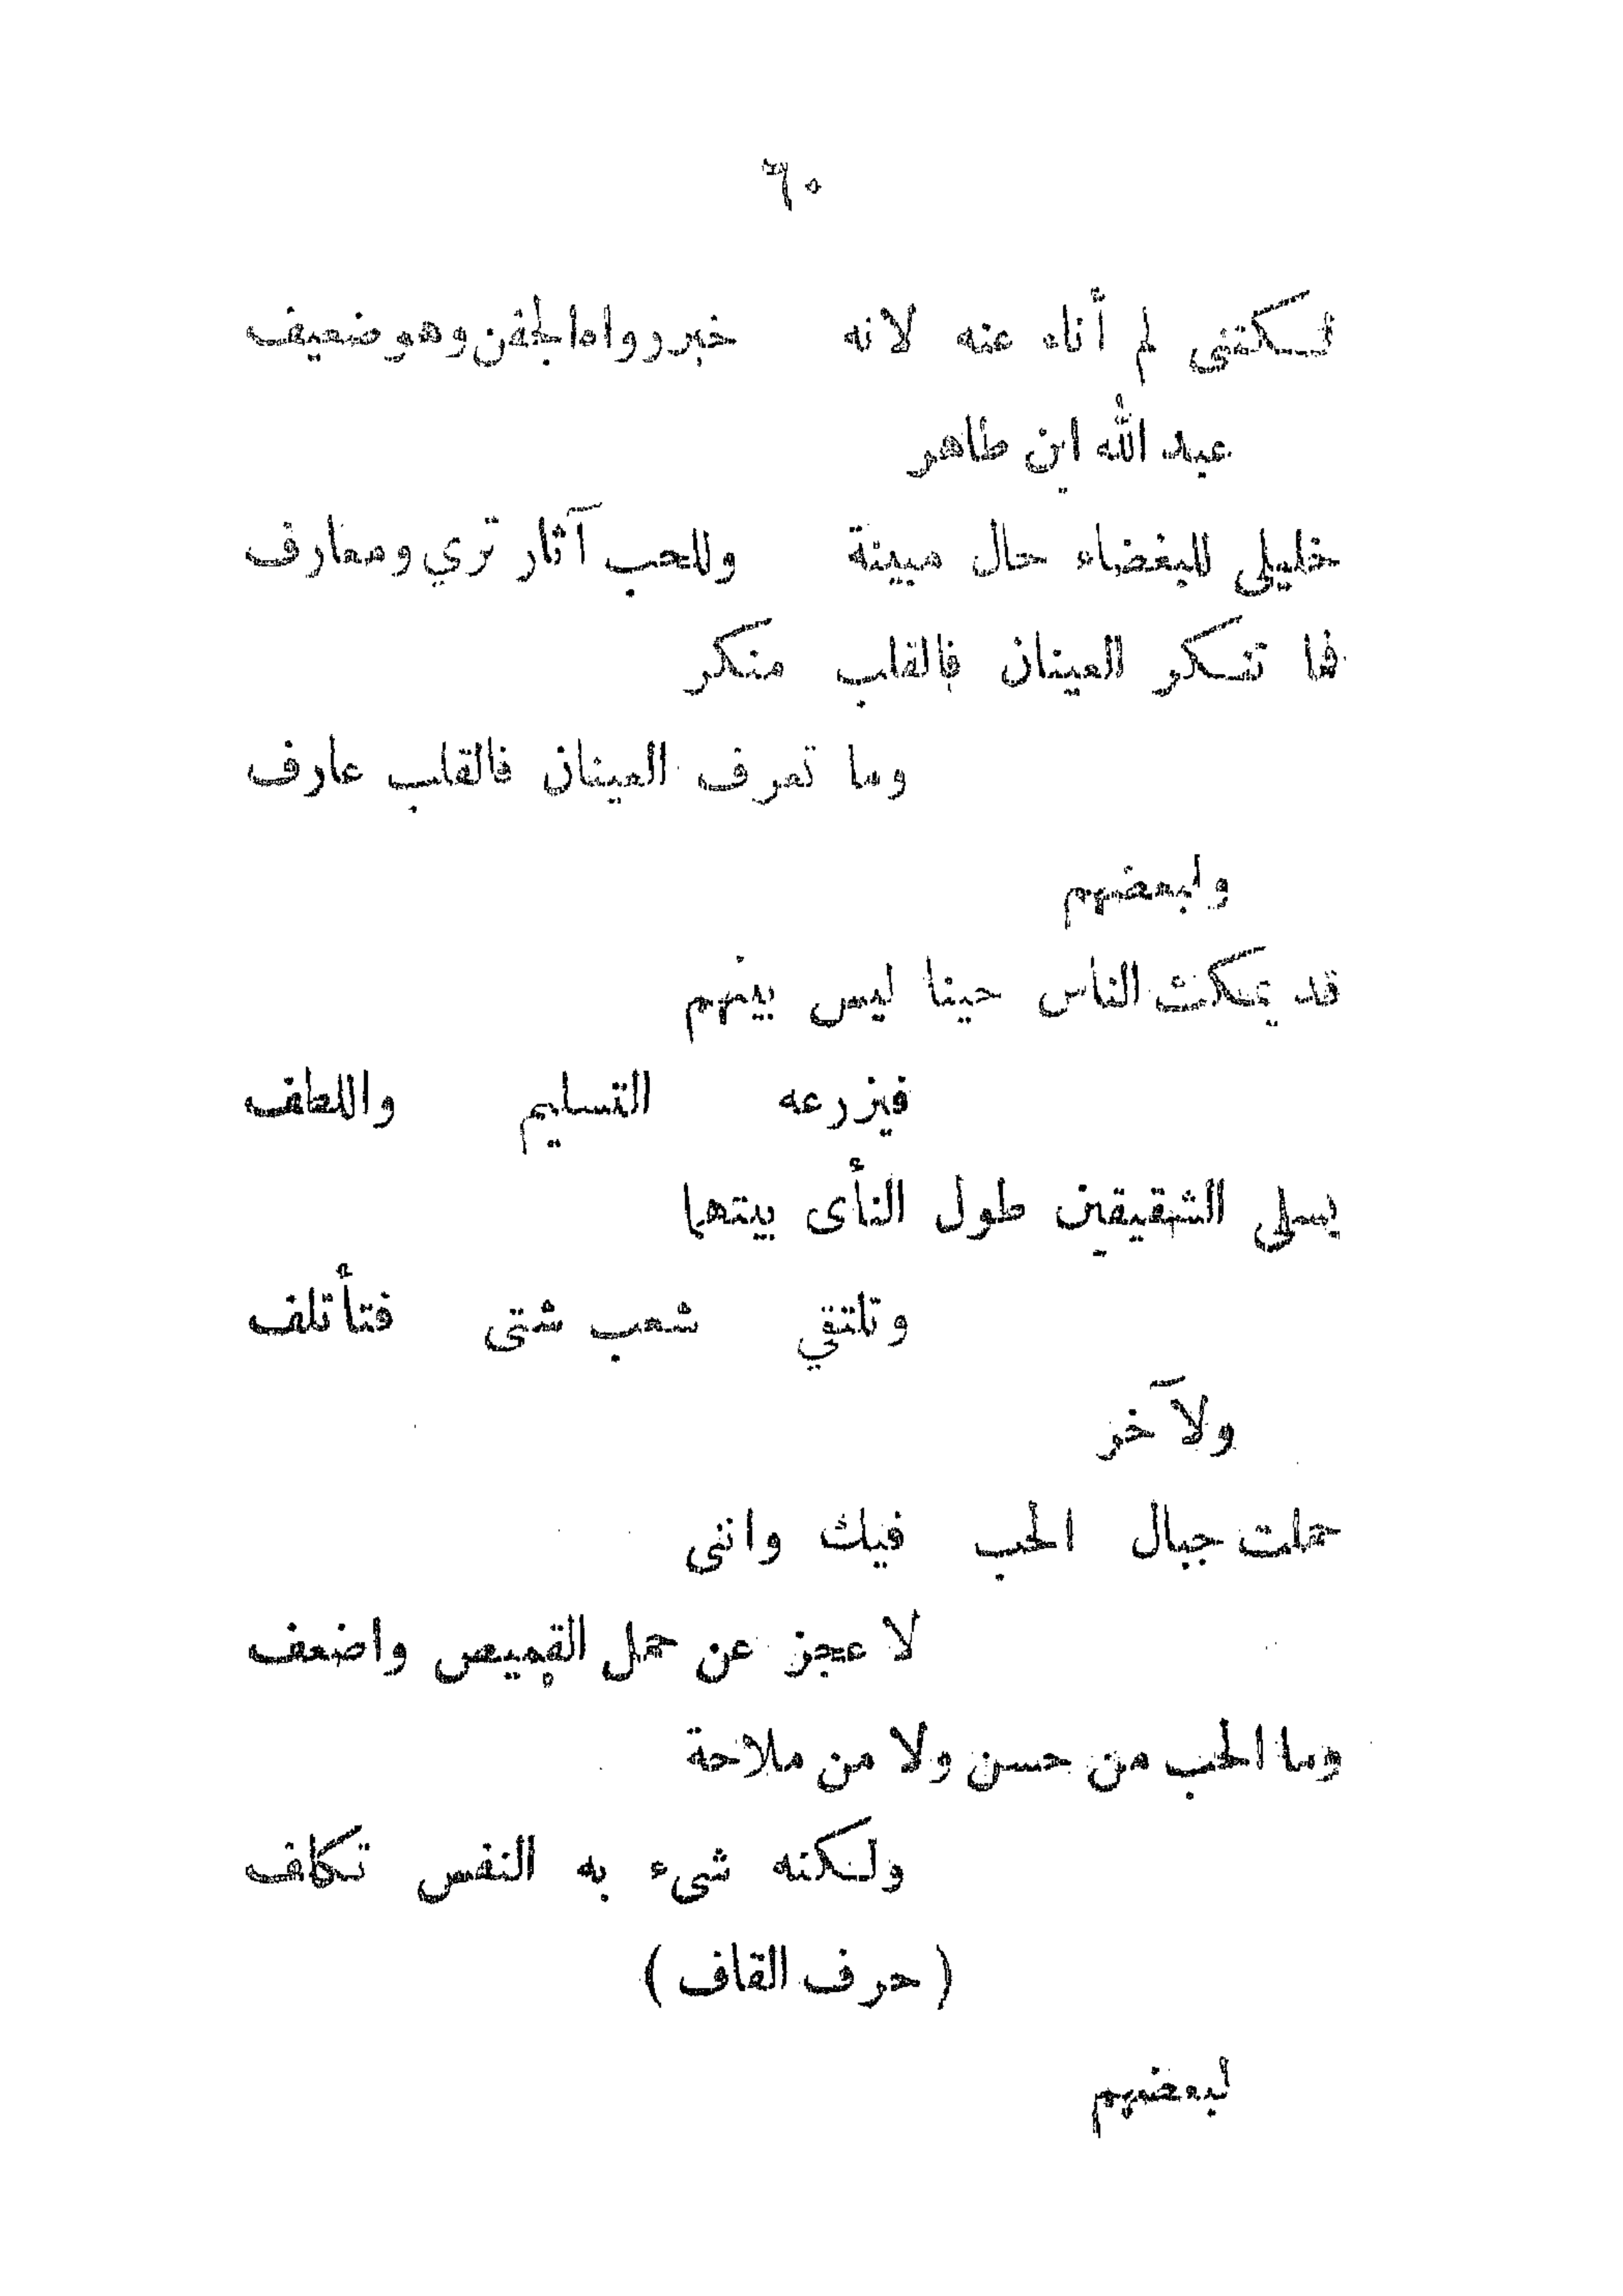 ٦٠
لكنني لم أناه عنه لانه خبر رواه الجفن وهو ضعيف
عبد الله ابن طاهر
خليلي للبغضاء حال مبينة وللحب آثار تري ومعارف
فما تنكر العينان فالقلب منكر
وما تعرف العينان فالقلب عارف
ولبعضهم
قد يمكث الناس حينا ليس بينهم
فيزرعه التسليم واللطف
يسلى الشقيقين طول النأى بينهما
وتلتقي شعب شتى فتأتلف
ولآخر
حملت جبال الحب فيك وانني
لا عجز عن حمل القميص واضعف
وما الحب من حسن ولا من ملاحة
ولكنه شىء به النفس تكلف
( حرف القاف )
لبعضهم